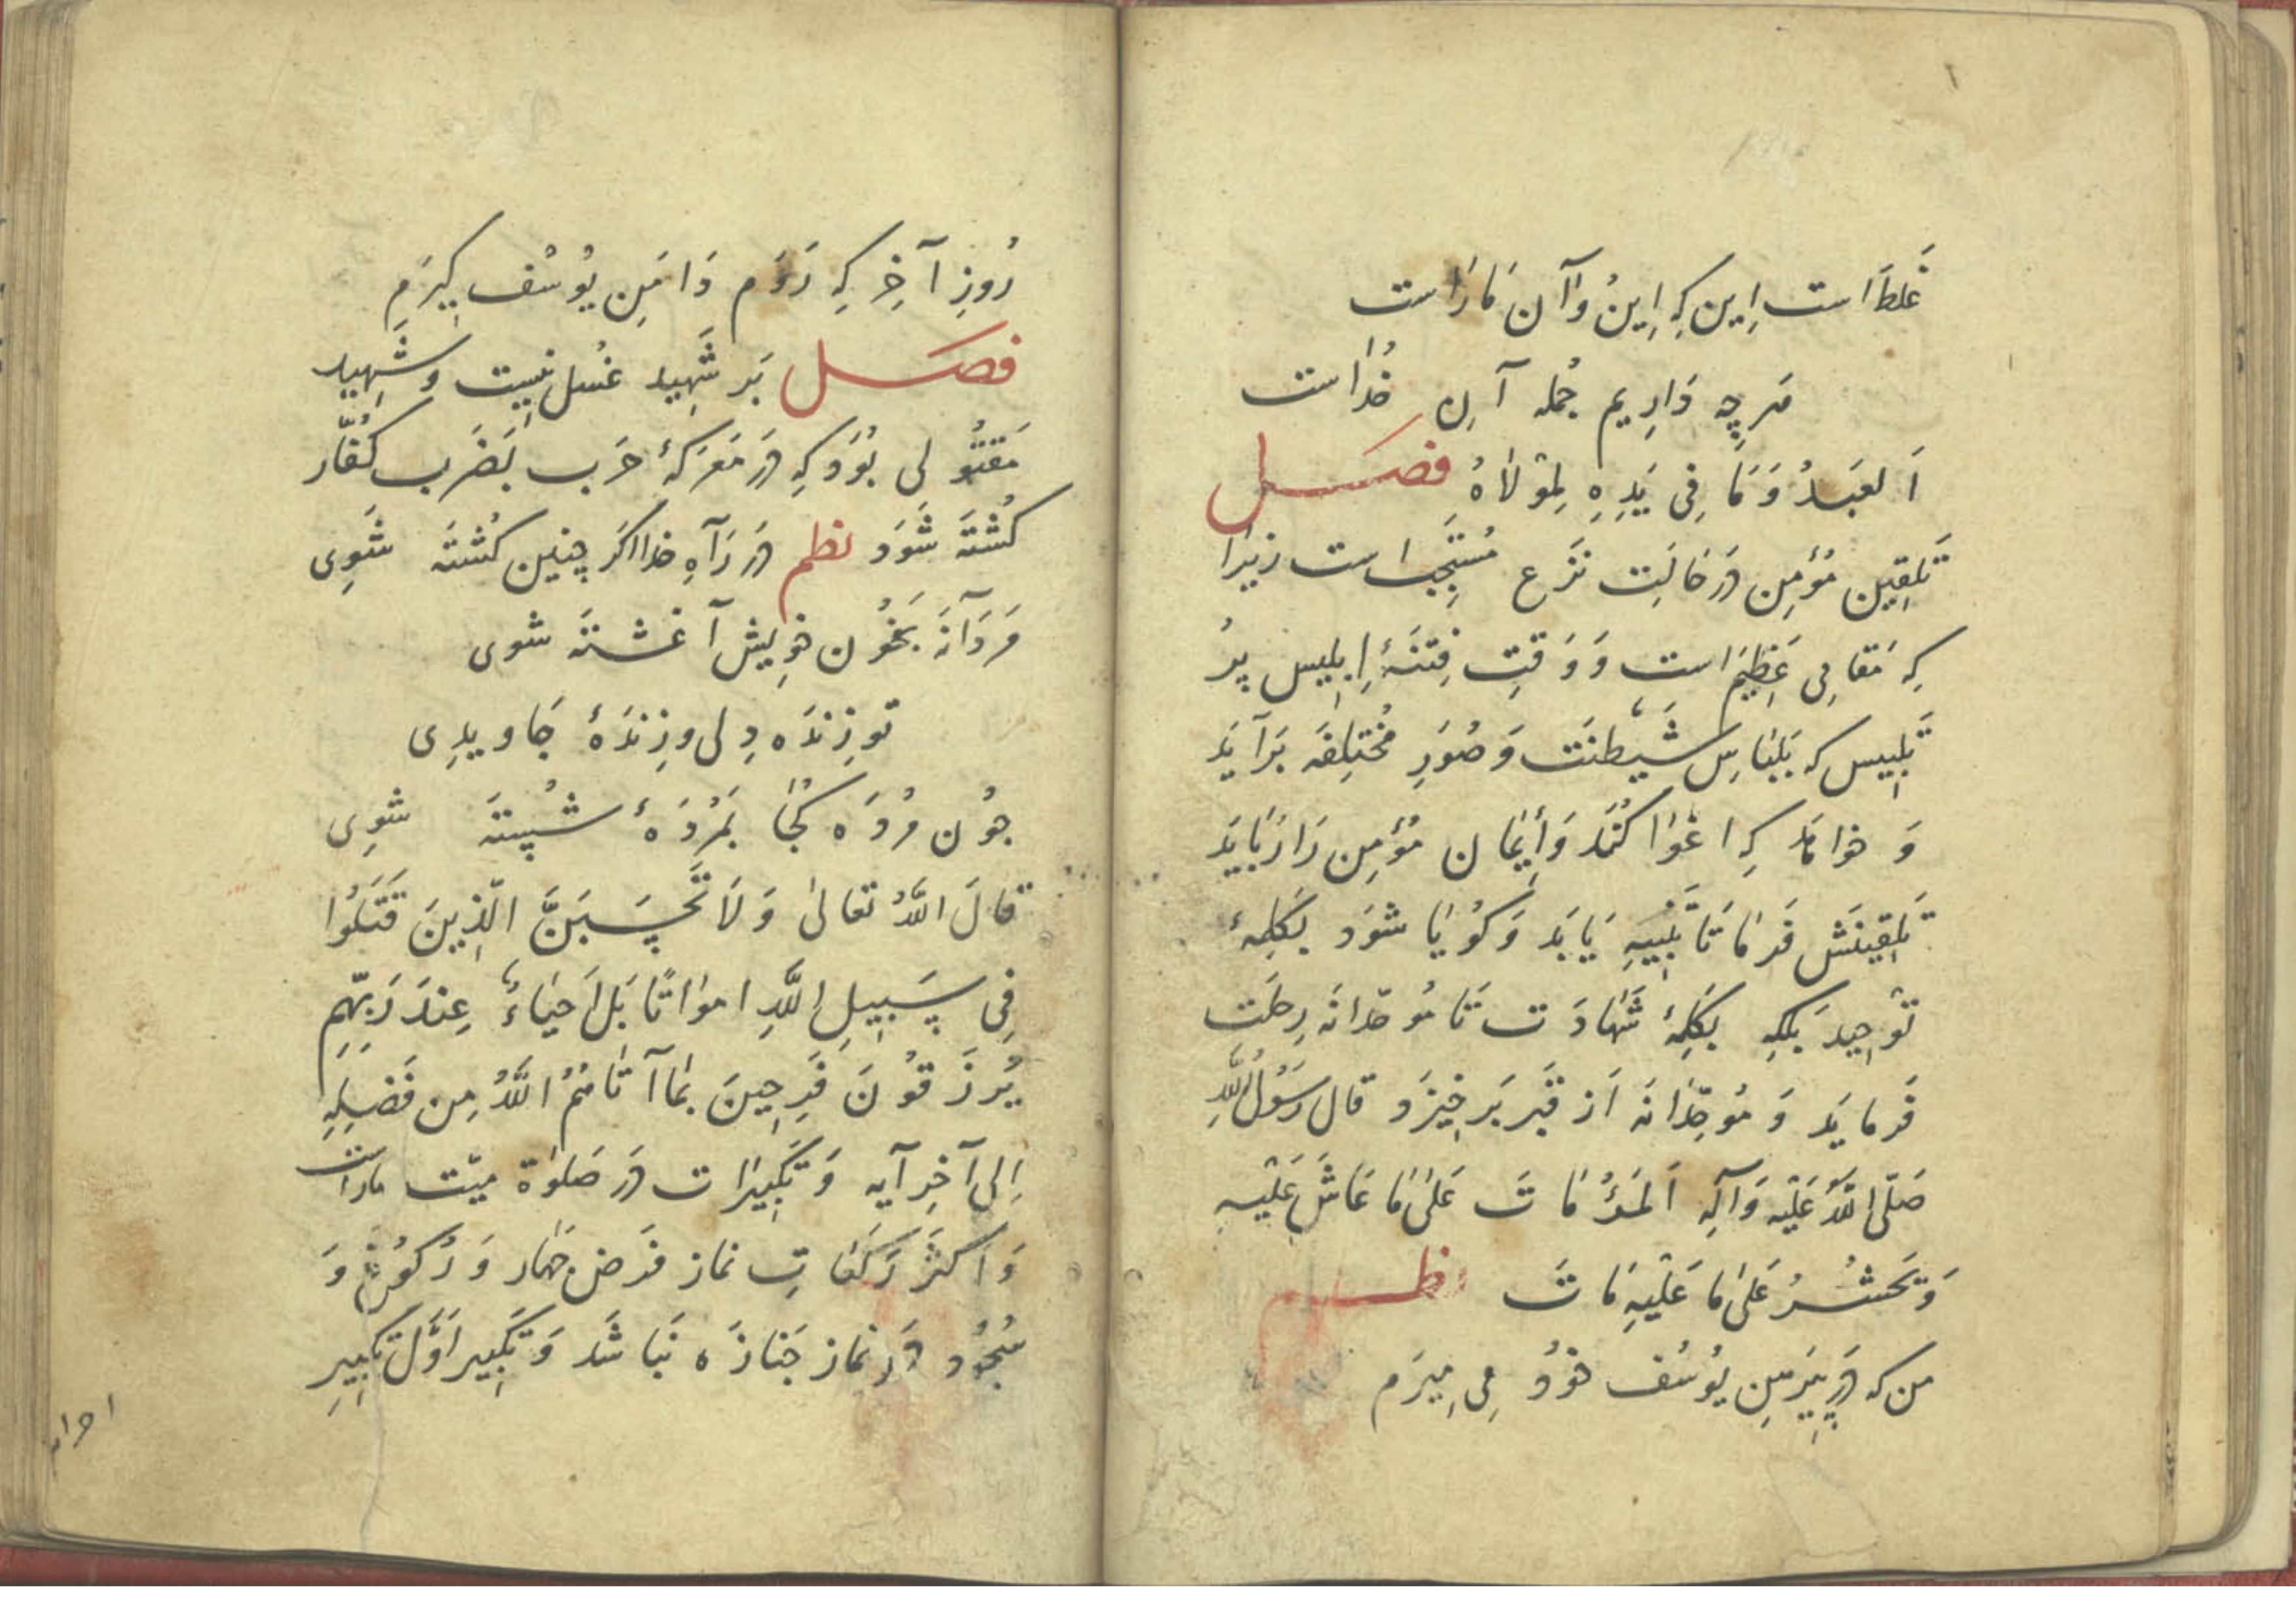 غَلَط است اِین کِه اِینُ و آن مَا رَاست
هَرچِه دَارِیم جُمله آنِ خُدَاست
اَلعَبدُ وَمَا فِی یَدِهِ لِمَوْلَاهُ فصل
تَلقِین مُؤمِن دَر حَالَتِ نَزع مُستَحِبّ است زیرَا
کِه مَقامِی عَظِیم است وَ وَقتِ فِتنَۀِ اِبلِیس پرُ
تَلبِیس که بَلِبَاسِ شَیطَنَت وَ صُوَرِ مُختَلِفَه بَرآیَد
وَ خواهَد کِه اغوَا کُنَد وَ اِیمَان مُؤمِن رَا رُبَایَد
تَلقِینَش فَرمَا تَا تَنبِیهِ یَابَد وَ کُویَا شَوَد بَکَلِمَۀ
تَوحِید بَلکِه بَکَلِمَۀ شَهَادَت تَا مُوحّدانَه رِحلَتِ
فَرمایَد وَ مُوحِّدَانَه اَز قَبر بَرخِیزَد قال رَسُولُ اللهِ
صَلّی اللهُ عَلَیْه وَآلِه اَلمَرْءُ مَاتَ عَلیٰ مَا عَاشَ عَلَیْهِ
وَیَحشُرُ عَلیٰ مَا عَلَیْهِ مَاتَ نظم
من که دَر پِیرَهنِ یُوسُف خودُ مِی مِیرَم
رُوزِ آخِر کِه رَوَم دَامَنِ یُوسُف کِیرَم
فصل بَر شَهِید غسُل نِیست وَ شَهِید
مَقتُولی بُوَد کِه دَر مَعرَکۀ حَرب بَضَرب کُفّار
کُشتَه شَوَد نظم دَر رَآهِ خدا اکَر چنین کُشتَه شَوِی
مَردَآنَه بَخُون خوِیش آغشتَه شوی
تو زِندَه دِلی و زِندَۀ جَاویدِی
چُون مُردَه کُجَا بَمُردَۀ شُستَه شوِی
قالَ اللهُ تعالیٰ وَلَا تَحْسَبَنَّ الَّذِینَ قَتَلُوا
فِی سَبِیلِ اللَّهِ امواتًا بَل اَحیَاءٌ عِندَ رَبّهِم
یُرزَقُونَ فَرِحِینَ بمَا آتَاهُمُ اللهُ مِن فَضلِهِ
اِلی آخِر آیه وَ تَکبِیرَات دَر صَلوٰة میّت ماراست
وَ اَکثَر رَکَعَاتِ نماز فَرض چهَار وَ رُکُوع وَ
سُجُود دَر نمَاز جَنازَه نَبَاشَد وَ تَکبِیر اَوَّل تَکبِیرِ
احرام